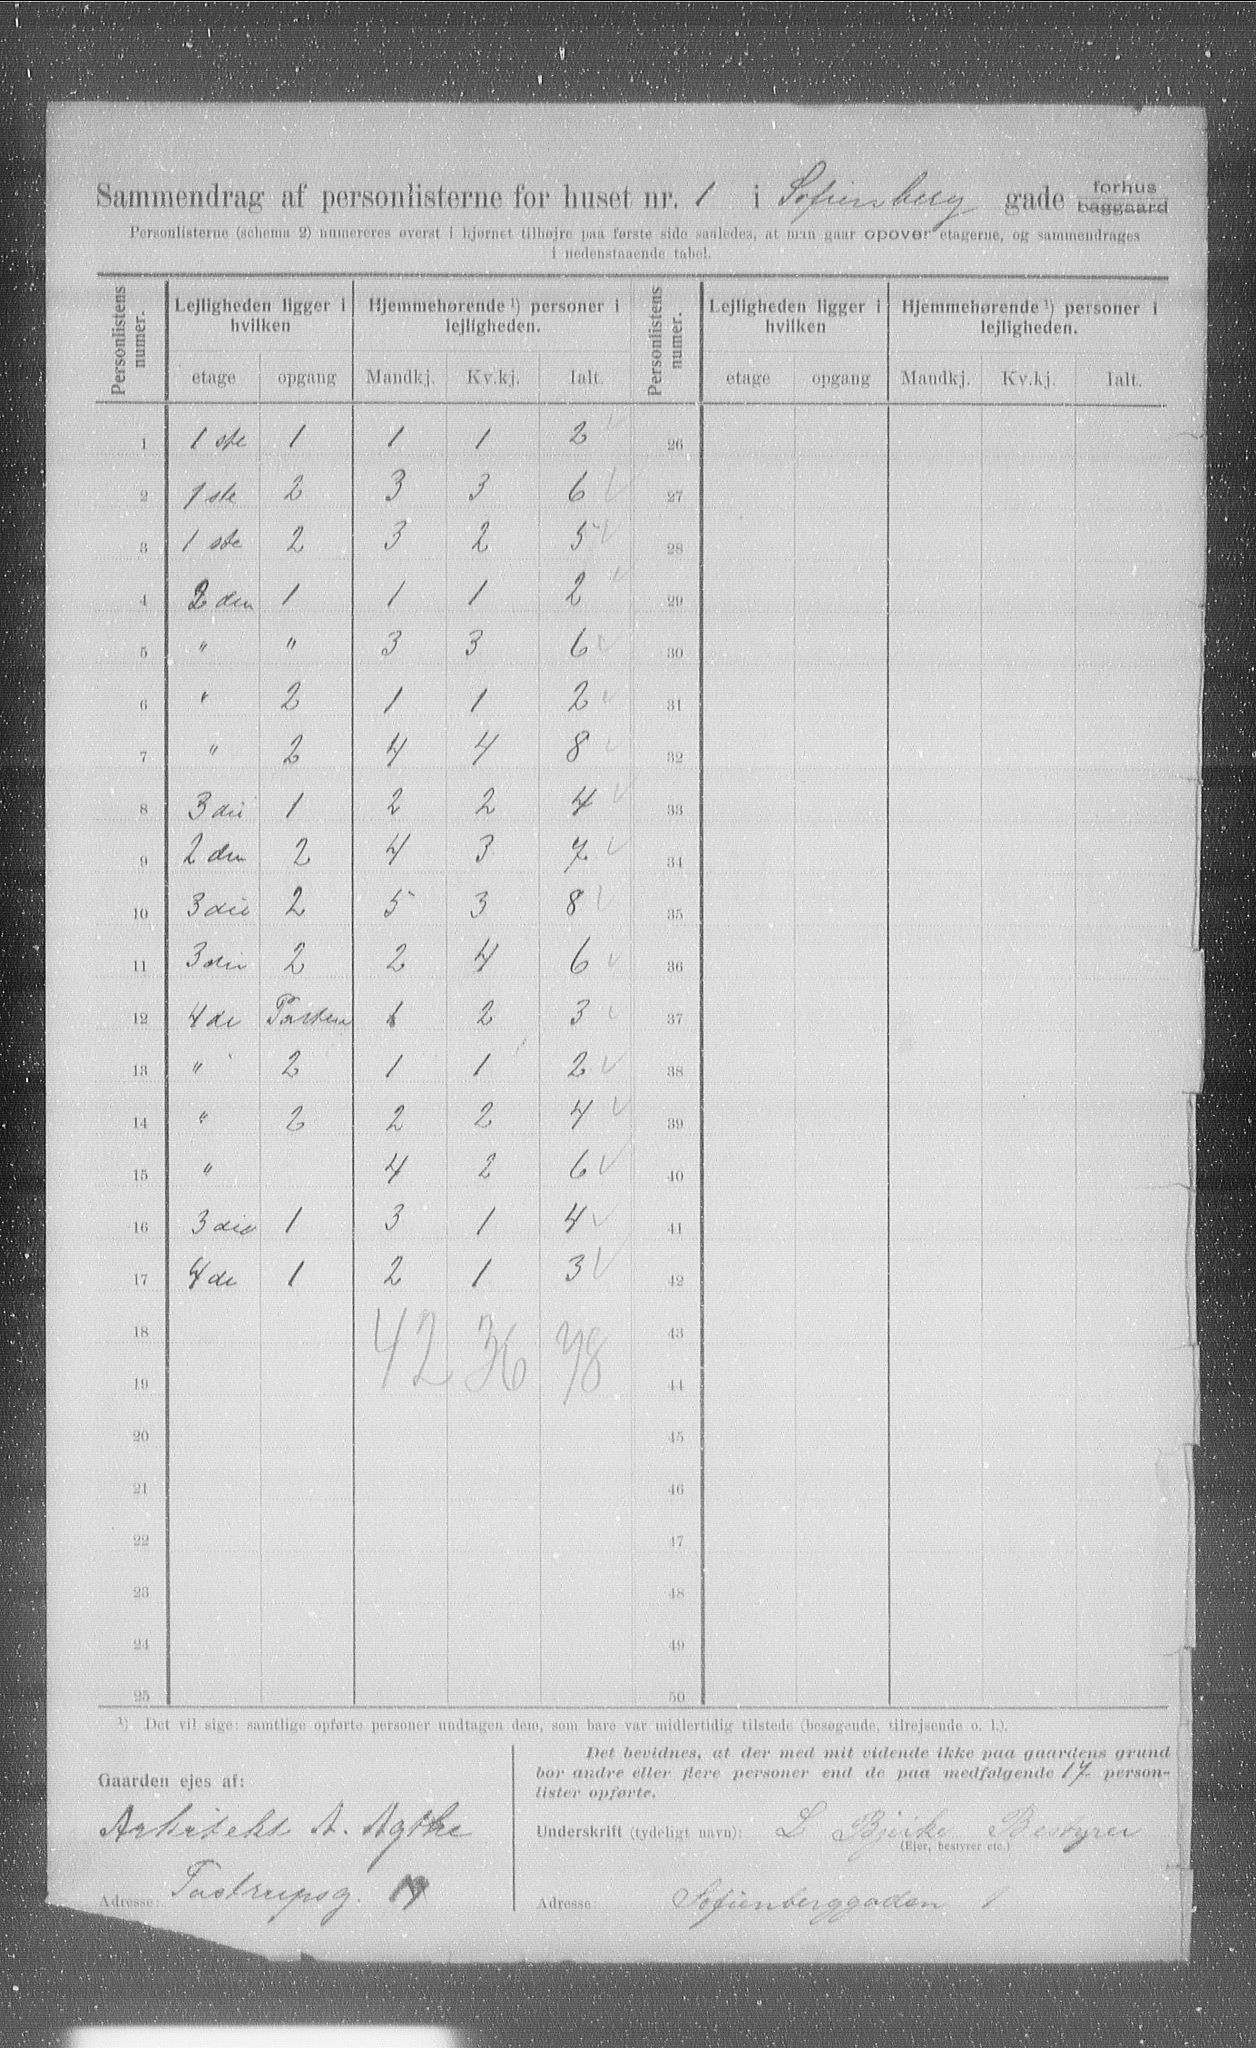 Sammendrag af personlisterne for huset nr. 1 i Sofienberg gade forhus baggaard
Personlisterne (schema 2) numereres øverst i hjørnet tilhøjre paa første side saaledes, at man gaar opover etagerne, og sammendrages
i nedenstaaende tabel.
Personlistens numer. Lejligheden ligger i hvilken Hjemmehørende ¹) personer i lejligheden. Personlistens numer. Lejligheden ligger i hvilken Hjemmehørende ¹) personer i lejligheden.
etage opgang Mandkj. Kv.kj. Ialt. etage opgang Mandkj. Kv.kj. Ialt.
1 1 ste 1 1 1 2 26
2 1 ste 2 3 3 6 27
3 1 ste 2 3 2 5 28
4 2 den 1 1 1 2 29
5 " " 3 3 6 30
6 " 2 1 1 2 31
7 " 2 4 4 8 32
8 3die 1 2 2 4 33
9 2 den 2 4 3 7 34
10 3die 2 5 3 8 35
11 3die 2 2 4 6 36
12 4de 1 2 3 37
13 " 2 1 1 2 38
14 " 2 2 2 4 39
15 " 4 2 6 40
16 3die 1 3 1 4 41
17 4de 1 2 1 3 42
18 42 36 78 43
19 44
20 45
21 46
22 47
23 48
24 49
25 50
¹) Det vil sige: samtlige opførte personer undtagen dem, som bare var midlertidig tilstede (besøgende, tilrejsende o. l.).
Gaarden ejes af:
Arkitekt A. Agthe
Adresse: Tostrupsg.
Det bevidnes, at der med mit vidende ikke paa gaardens grund
bor andre eller flere personer end de paa medfølgende 17 person-
lister opførte.
Underskrift (tydeligt navn): L Bjerke Bestyrer
(Ejer, bestyrer etc.)
Adresse Sofienberggaden 1